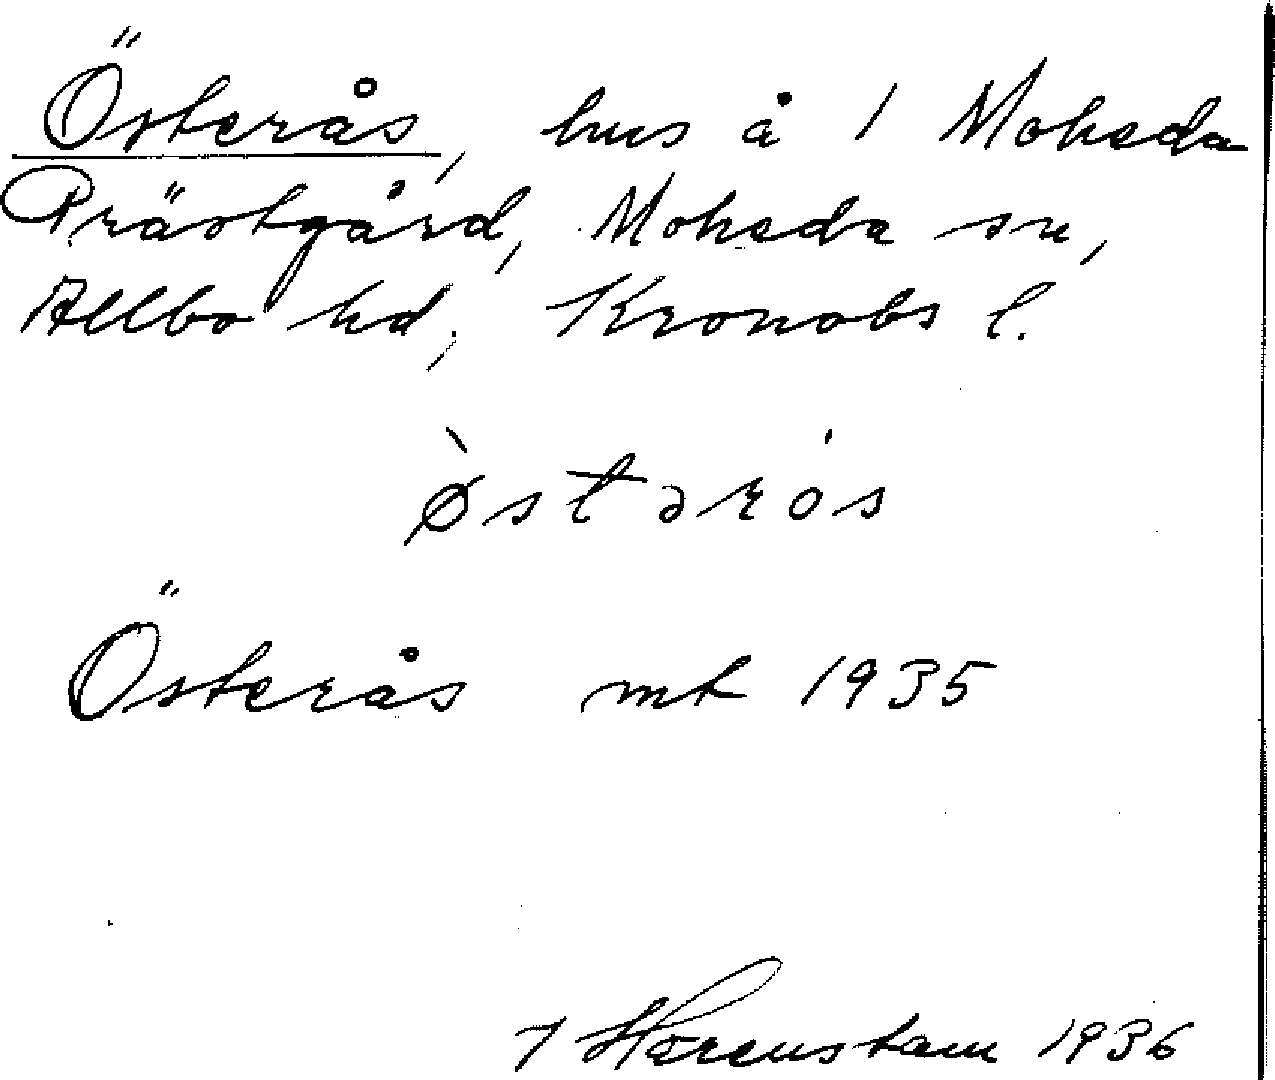 Österås, hus å 1 Moheda
Prästgård, Moheda sn,
Allbo hd, Kronobs l.
ø̀stərós
Österås mt 1935
I Harenstam 1936